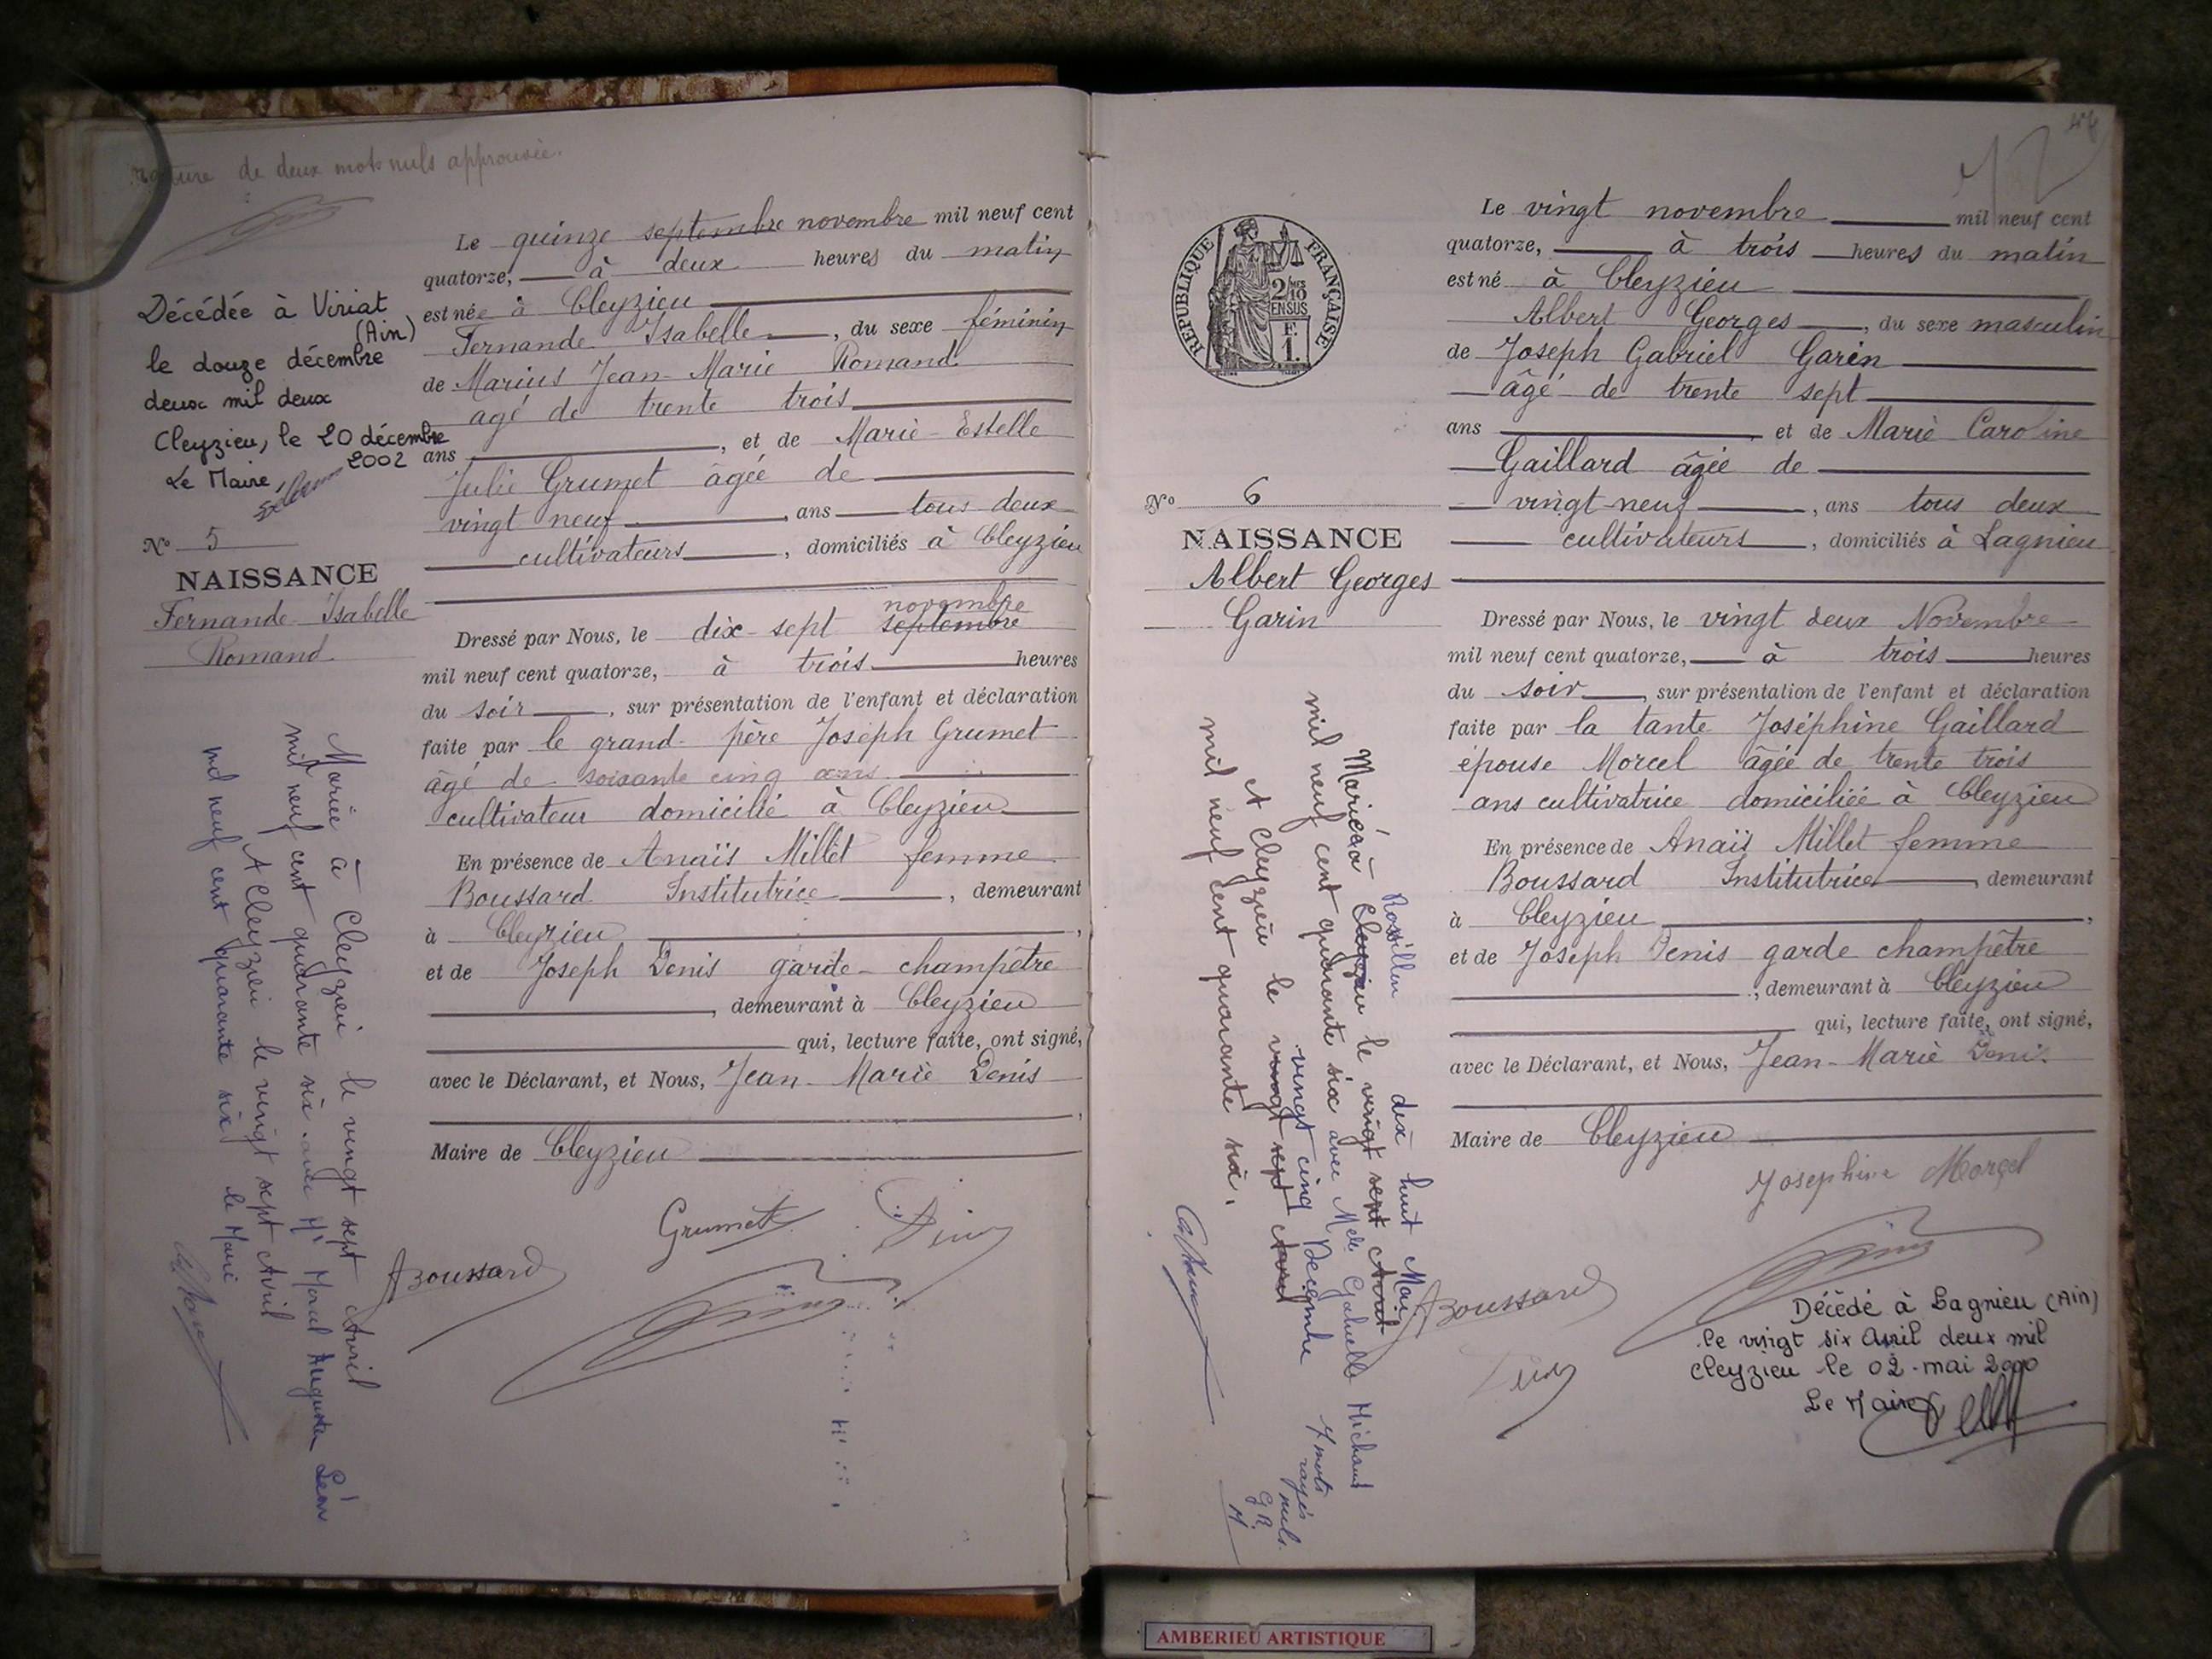 Rature de deux mots nuls approuvée.
Décédée à Viriat
(Ain)
le douze décembre
deux mil deux
Cleyzieu, le 20 décembre
2002
Le Maire,
N° 5
NAISSANCE
Fernande Isabelle
Romand
Mariée à Cleyzieu le vingt sept Avril
mil neuf cent quarante six avec Mr Morcel Augustin Léon
A Cleyzieu le vingt sept Avril
mil neuf cent quarante six le Maire
Le quinze septembre novembre mil neuf cent
quatorze, à deux heures du matin
est née à Cleyzieu
Fernande Isabelle, du sexe féminin
de Marius Jean-Marie Romand
agé de trente trois
ans, et de Marie-Estelle
Julie Grumet âgée de
vingt neuf, ans tous deux
cultivateurs, domiciliés à Cleyzieu
novembre
Dressé par Nous, le dix-sept septembre
mil neuf cent quatorze, à trois heures
du soir, sur présentation de l'enfant et déclaration
faite par le grand-père Joseph Grumet
âgé de soixante cinq ans
cultivateur domicilié à Cleyzieu
En présence de Anaïs Millet femme
Boussard Institutrice, demeurant
à Cleyzieu,
et de Joseph Denis garde-champêtre
, demeurant à Cleyzieu
qui, lecture faite, ont signé,
avec le Déclarant, et Nous, Jean-Marie Denis
,
Maire de Cleyzieu
Grumet
ABoussard
RÉPUBLIQUE FRANÇAISE
2/10 MES
EN SUS
F.
1.
N° 6
NAISSANCE
Albert Georges
Garin
Rossillon dix huit Mai
Marié à Cleyzieu le vingt sept Avril
mil neuf cent quarante six avec Melle Gabrielle Michaud
vingt cinq Décembre
A Cleyzieu le vingt sept Avril
mil neuf cent quarante six.
7 mots
rayés
nuls.
G R.
M
Le vingt novembre mil neuf cent
quatorze, à trois heures du matin
est né à Cleyzieu
Albert Georges, du sexe masculin
de Joseph Gabriel Garin
âgé de trente sept
ans et de Marie Caroline
Gaillard âgée de
vingt-neuf, ans tous deux
cultivateurs, domiciliés à Lagnieu
Dressé par Nous, le vingt deux Novembre
mil neuf cent quatorze, à trois heures
du soir, sur présentation de l'enfant et déclaration
faite par la tante Joséphine Gaillard
épouse Morcel âgée de trente trois
ans cultivatrice domiciliée à Cleyzieu
En présence de Anaïs Millet femme
Boussard Institutrice, demeurant
à Cleyzieu,
et de Joseph Denis garde champêtre
, demeurant à Cleyzieu
qui, lecture faite, ont signé,
avec le Déclarant, et Nous, Jean-Marie Denis
Maire de Cleyzieu
Josephine Morcel
ABoussard
Décédé à Lagnieu (Ain)
le vingt six Avril deux mil
Cleyzieu le 02 mai 2000
Le Maire
AMBERIEU ARTISTIQUE